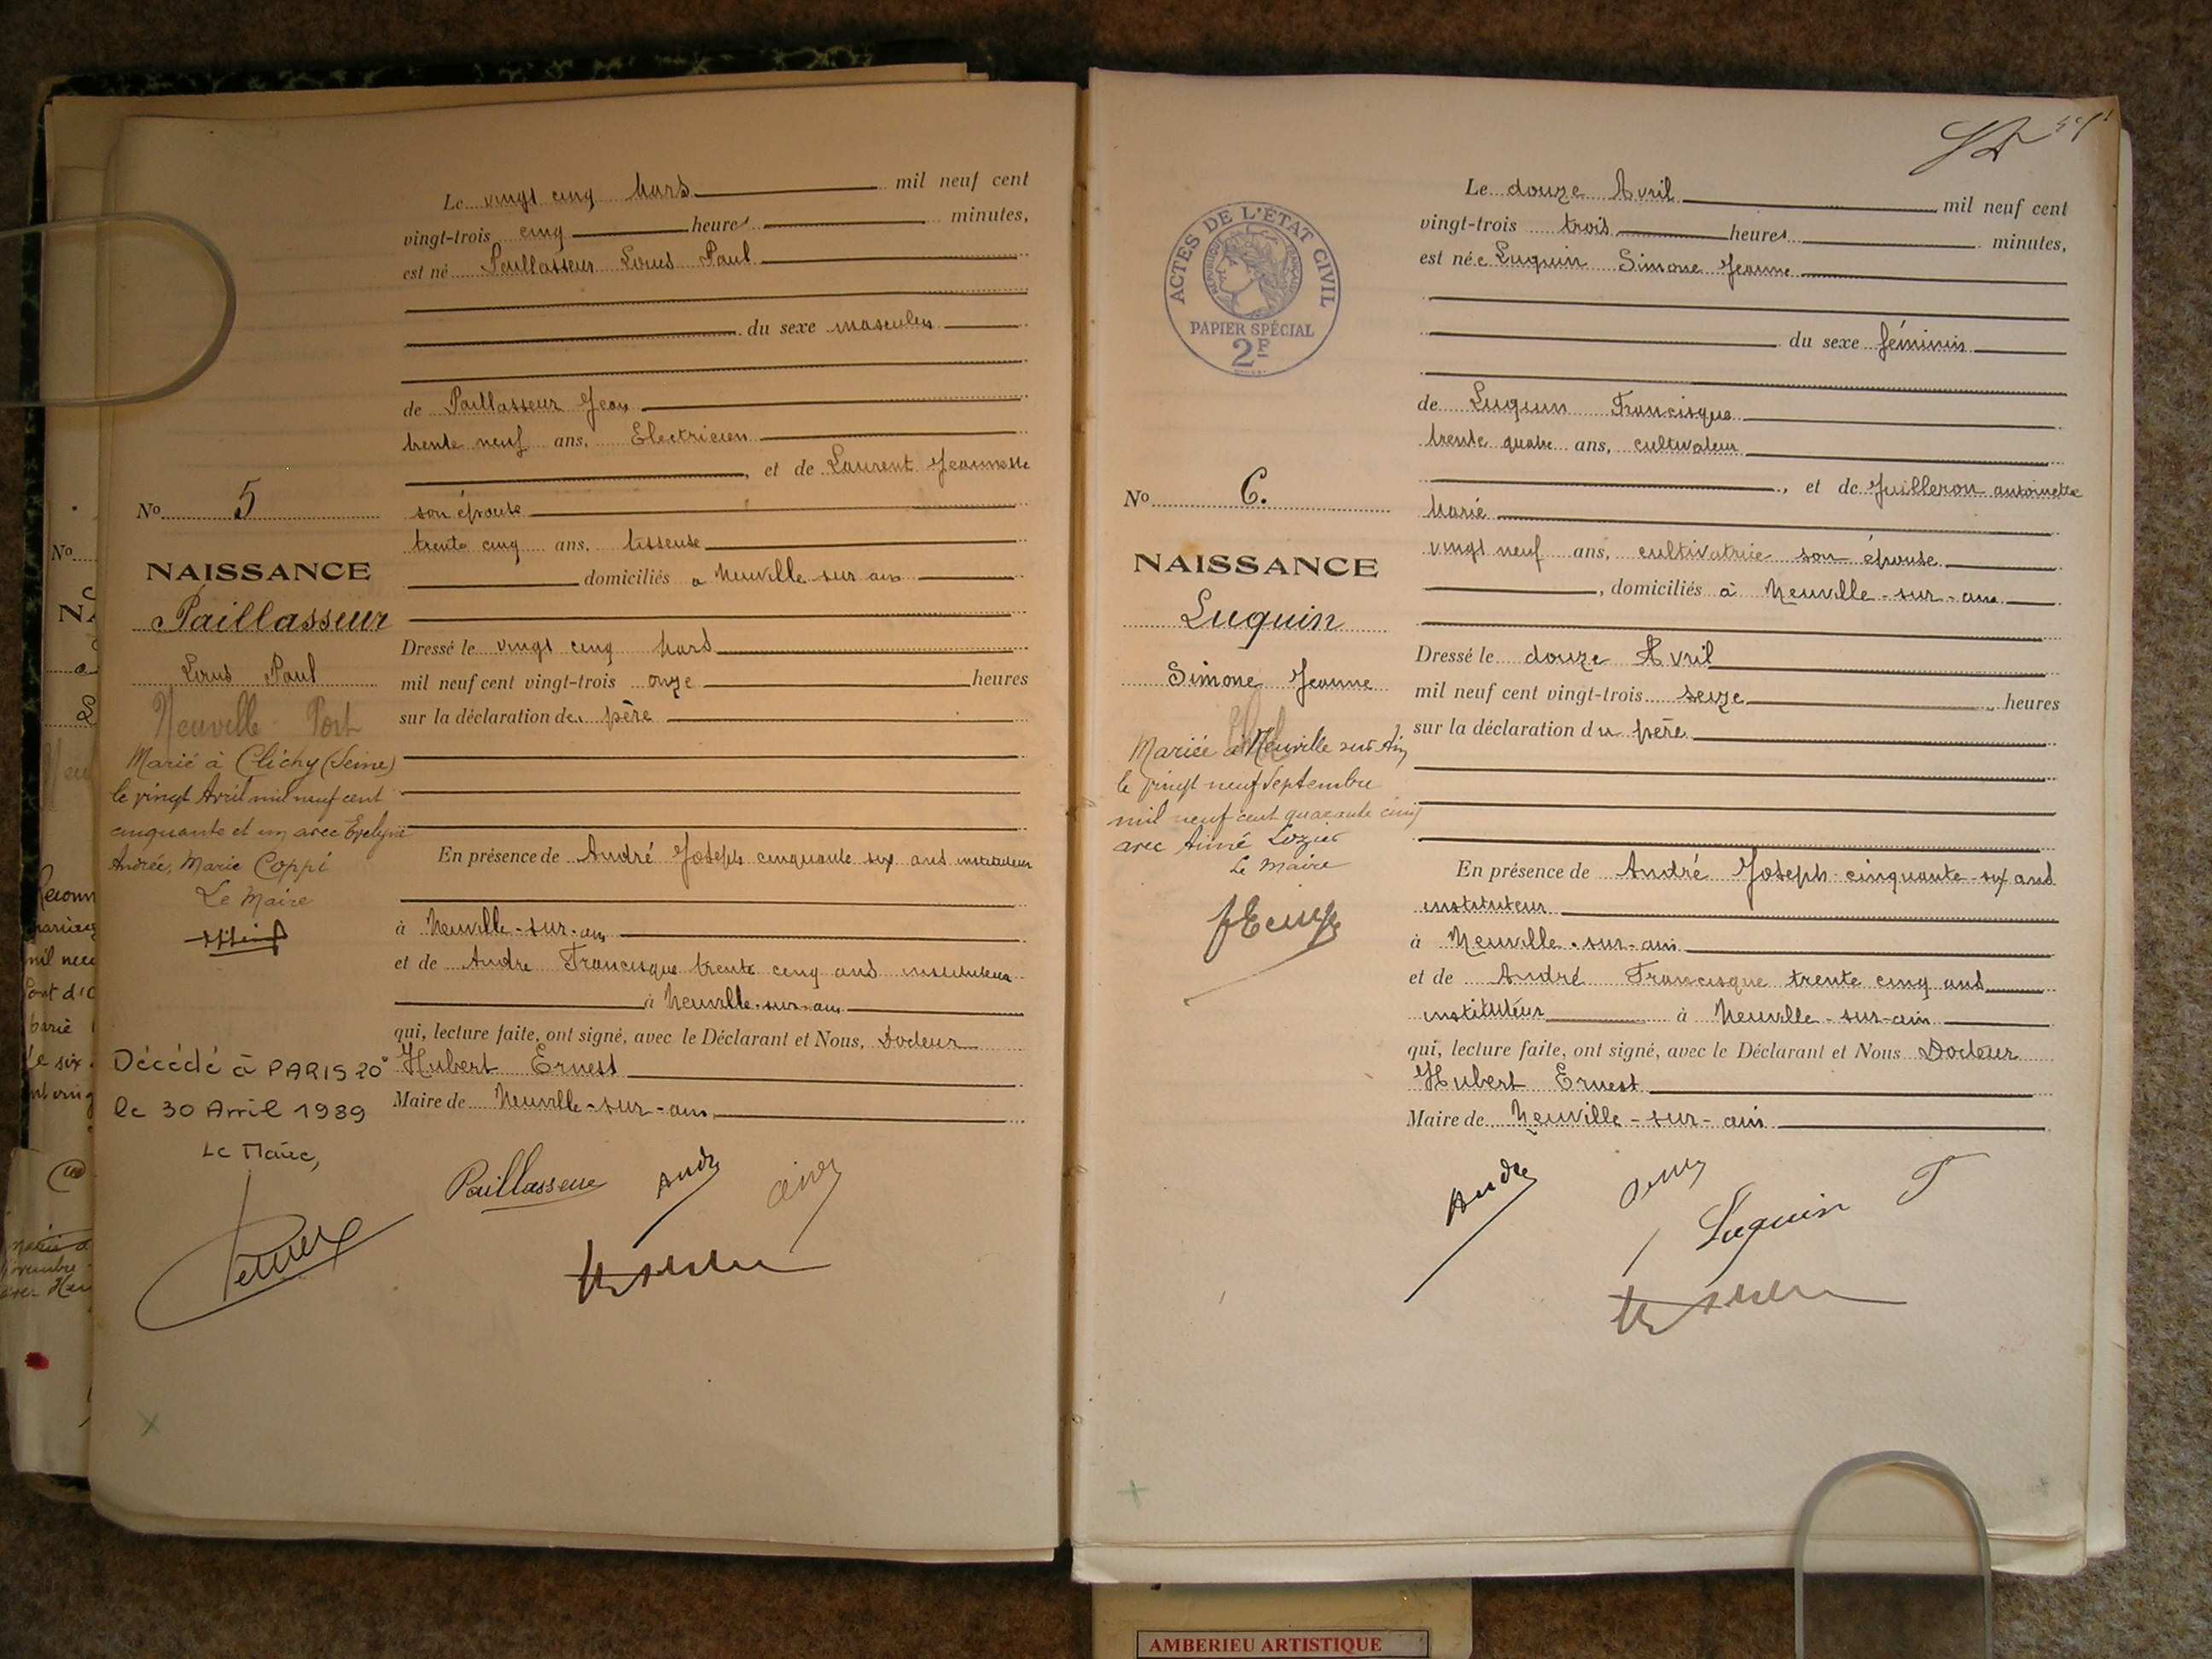 Le vingt cinq Mars mil neuf cent
vingt-trois cinq heures minutes,
est né Paillasseur Louis Paul
du sexe masculin
de Paillasseur Jean
trente neuf ans, Electricien
, et de Laurent Jeannette
son épouse
trente cinq ans, tisseuse
domiciliés à Neuville sur ain
Dressé le vingt cinq Mars
mil neuf cent vingt-trois onze heures
sur la déclaration du père
En présence de André Joseph cinquante six ans instituteur
à Neuville-sur-ain
et de André Francisque trente cinq ans instituteur
à Neuville-sur-ain
qui, lecture faite, ont signé, avec le Déclarant et Nous, Docteur
Hubert Ernest
Maire de Neuville-sur-ain
Paillasseur André
No 5
NAISSANCE
Paillasseur
Louis Paul
Neuville Port
Marié à Clichy (Seine)
le vingt Avril mil neuf cent
cinquante et un avec Evelyne
Andrée, Marie Coppi
Le Maire
Décédé à PARIS 20°
le 30 Avril 1989
Le Maire,
No
Le douze Avril mil neuf cent
vingt-trois trois heures minutes,
est née Luquin Simone Jeanne
du sexe féminin
de Luquin Francisque
trente quatre ans, cultivateur
, et de Juilleron antoinette
Marié
vingt neuf ans, cultivatrice son épouse
, domiciliés à Neuville-sur-ain
Dressé le douze Avril
mil neuf cent vingt-trois seize heures
sur la déclaration du père
En présence de André Joseph cinquante-six ans
instituteur
à Neuville-sur-ain
et de André Francisque trente cinq ans
instituteur à Neuville-sur-ain
qui, lecture faite, ont signé, avec le Déclarant et Nous Docteur
Hubert Ernest
Maire de Neuville-sur-ain
André
Luquin F
ACTES DE L'ÉTAT CIVIL
PAPIER SPÉCIAL
2F
No 6.
NAISSANCE
Luquin
Simone Jeanne
Mariée à Neuville sur Ain
le vingt neuf Septembre
mil neuf cent quarante cinq
avec Aimé Lozier
Le Maire
AMBERIEU ARTISTIQUE